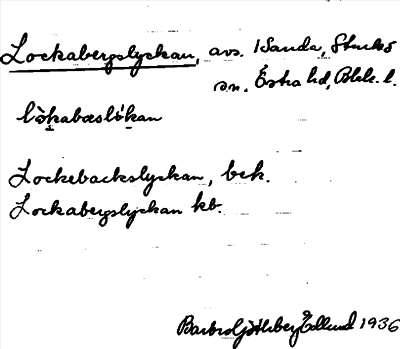 Lockabergslyckan, avs. i Sanda, Sturkö
sn. Östra hd, Blek. l.
lòkabæslókan
Lockebackslyckan, bek.
Lockabergslyckan kb.
Edlund 1936